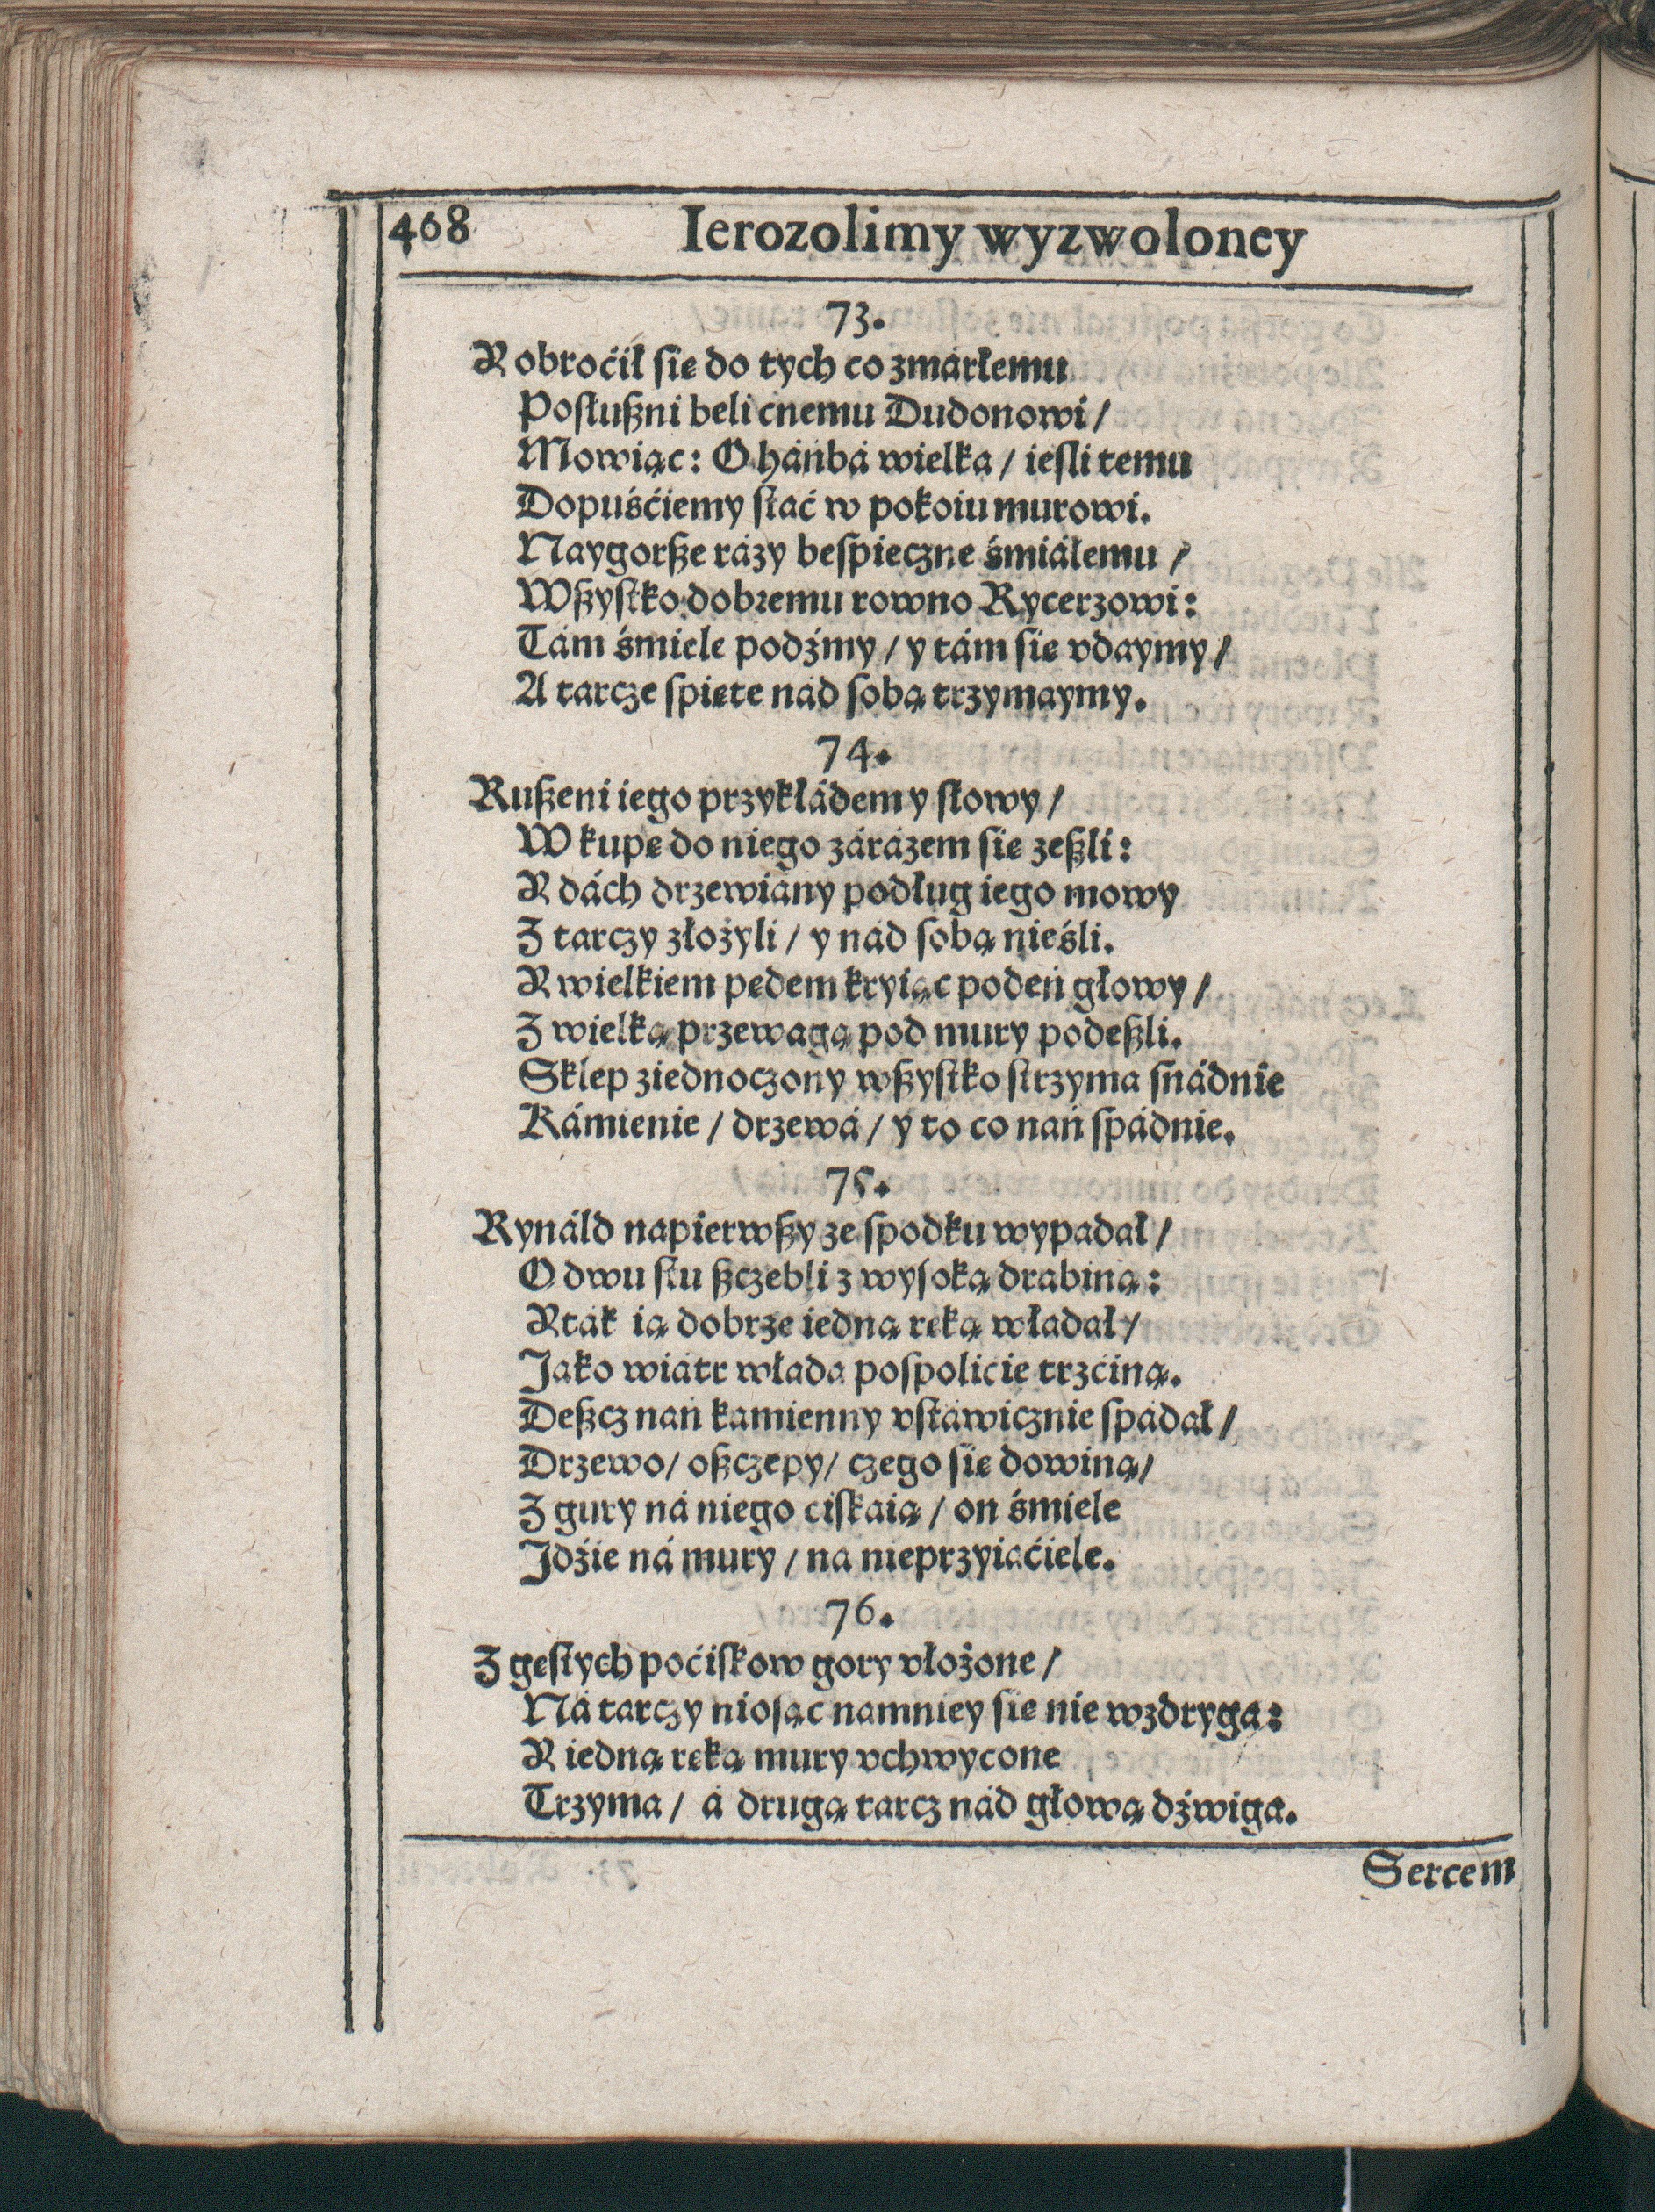 468 Ierozolimy wyzwoloney
73.
Y obroćił ſie do tych co zmárłemu
Poſłußni beli cnemu Dudonowi/
Mowiąc: O háńbá wielka/ ieſli temu
Dopuśćiemy ſtać w pokoiu murowi.
Naygorße rázy beſpieczne śmiáłemu/
Wßyſtko dobremu rowno Rycerzowi:
Tám śmiele podźmy/ y tám ſie vdaymy/
A tarcze ſpięte nád ſobą trzymaymy.
74.
Rußeni iego przykłádem y ſłowy/
W kupę do niego zárázem ſie zeßli:
Y dách drzewiány podług iego mowy
Z tarczy złożyli/ y nád ſobą nieśli.
Y wielkiem pędem kryiąc podeń głowy/
Z wielką przewagą pod mury podeßli.
Sklep ziednoczony wßyſtko ſtrzyma ſnádnie
Kámienie/ drzewá/ y to co nań ſpádnie.
75.
Rynáld napierwßy ze ſpodku wypadał/
O dwu ſtu ßczebli z wyſoką drabiną:
Y ták ią dobrze iedną ręką władał/
Jako wiátr włada poſpolicie trzciną.
Deßcz nań kamienny vſtáwicznie ſpádał/
Drzewo/ oßczepy/ czego ſie dowiną/
Z gury ná niego ciſkaią/ on śmiele
Jdźie ná mury/ na nieprzyiaćiele.
76.
Z gęſtych poćiſkow gory vłożone/
Ná tarczy nioſąc namniey ſie nie wzdryga:
Y iedną ręką mury vchwycone
Trzyma/ á drugą tarcz nád głową dźwiga.
Sercem